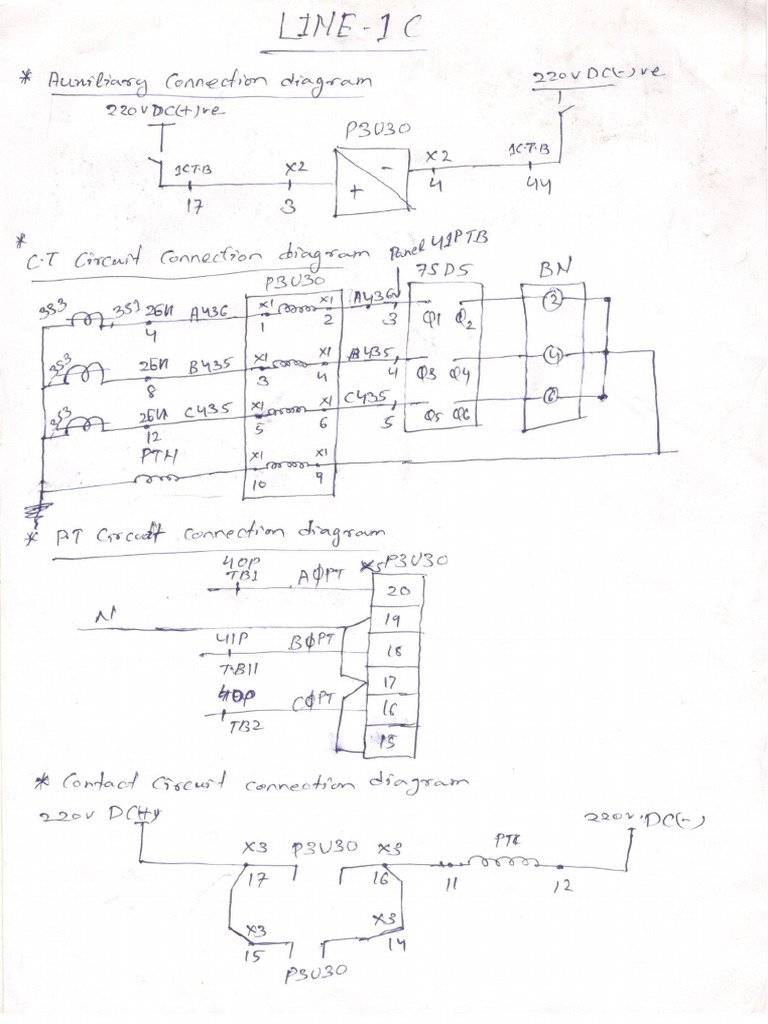 LINE-1C
* Auxiliary Connection diagram
220VDC(-)ve
220VDC(+)ve
P3U30
1CT-B X2 X2 1C.T-B
+ -
17 3 4 44
*
C.T Circuit Connection diagram
Panel 41PTB
P3U30 75D5 BN
3S3 3S1 26N A436 X1 X1 A436 Q1 Q2 2
4 1 2 3
3S3 26N B435 X1 X1 B435 Q3 Q4 4
8 3 4 4
3S3 26N C435 X1 X1 C435 Q5 Q6 6
12 5 6 5
PTH X1 X1
10 9
* P.T Circuit connection diagram
40P X5 P3U30
TB1 AΦPT 20
N 19
41P BΦPT 18
T-B11 17
40P CΦPT 16
TB2
15
* Contact Circuit connection diagram
220V DC(+)
220V.DC(-)
X3 P3U30 X3
17 16 11 12
X3 X3
15 14
P3U30